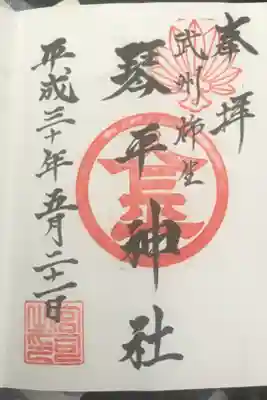 奉拝
武州柿生
琴平神社
平成三十年五月二十一日